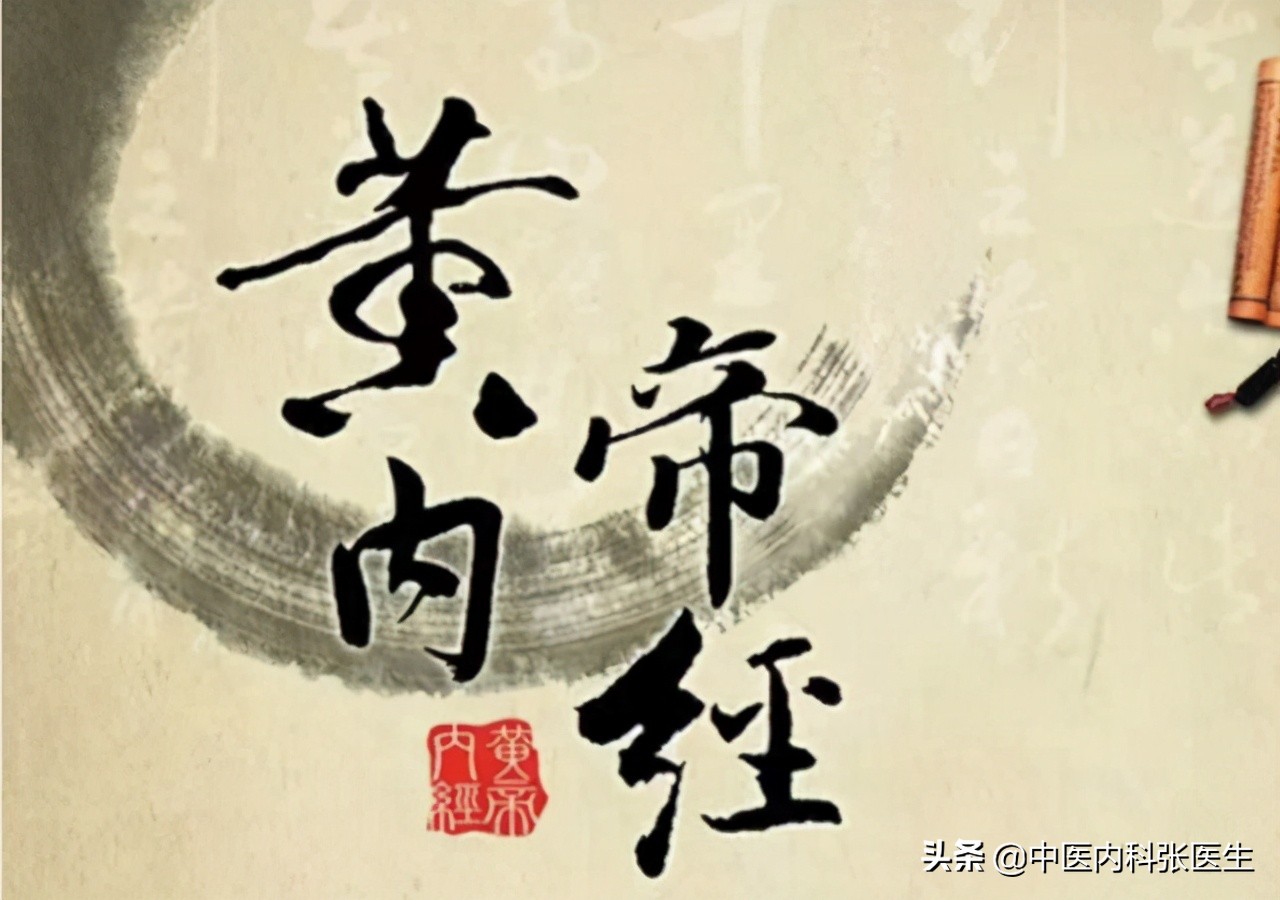 黄帝
内經
黄帝
内經
头条 @中医内科张医生